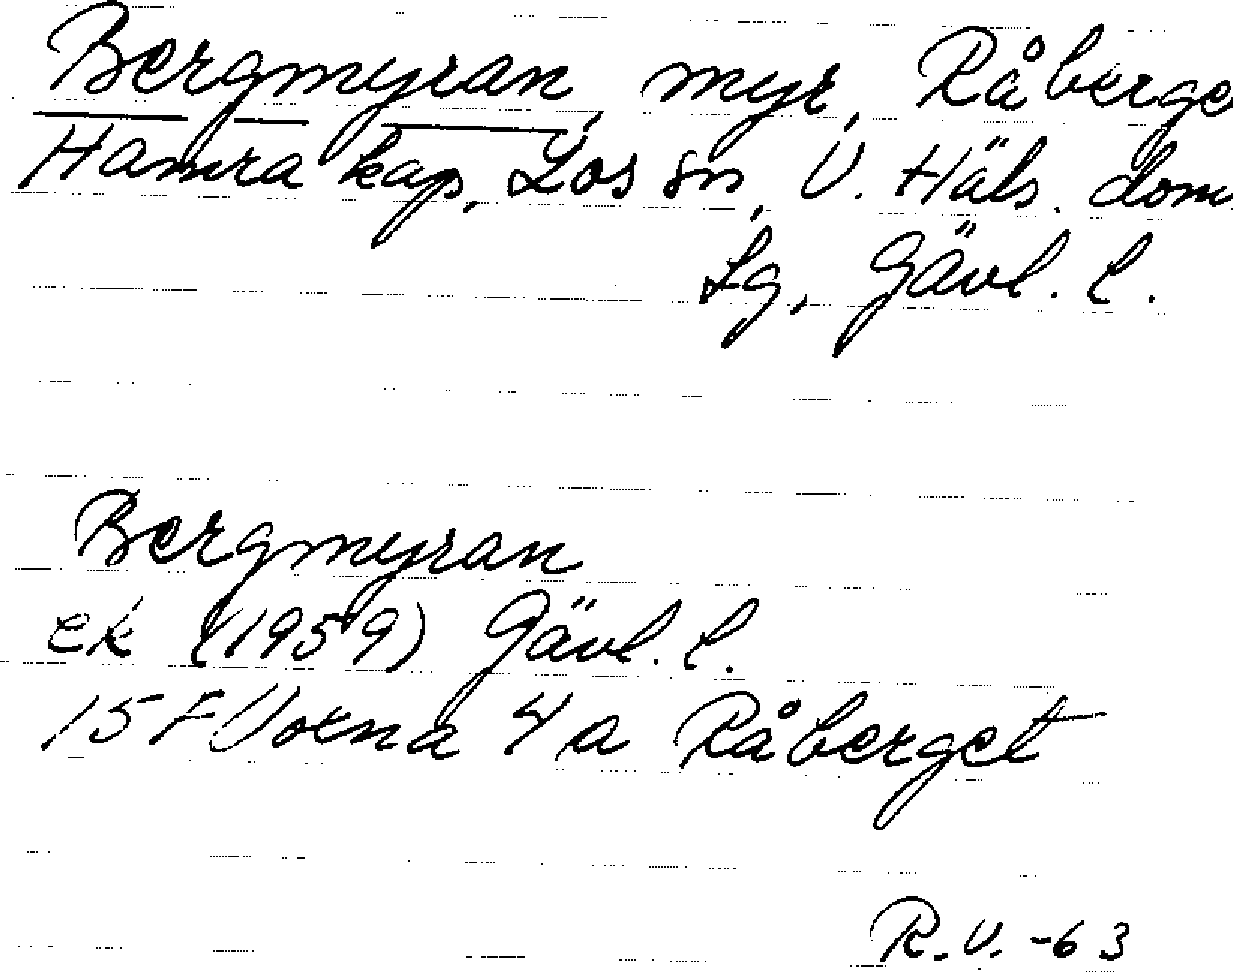 Bergmyran, myr, Råberge
Hamra kap, Los sn, V. Häls. dom
sg, Gävl. l.
Bergmyran
ek (1959) Gävl. l.
15 F Vorna 4 a Råberget
R.V. -63